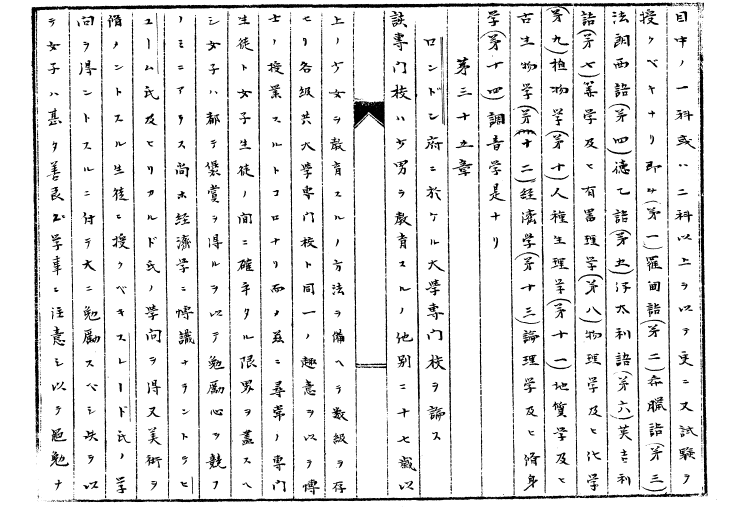 目中ノ一科或ハ二科以上ヲ以テ更ニ又試験ヲ
授クベキナリ即チ(第一)羅甸語(第二)希臘語(第三)
法朗西語(第四)徳乙語(第五)伊太利語(第六)英吉利
語(第七)算学及ヒ有畧理学(第八)物理学及ヒ化学
(第九)植物学(第十)人種生理学(第十一)地質学及ヒ
古生物学(第十二)経済学(第十三)論理学及ヒ脩身
学(第十四)調音学是ナリ
第三十五章
ロンドン府ニ於ケル大学専門校ヲ論ス
該専門校ハ少男ヲ教育スルノ他別ニ十七歳以
上ノ少女ヲ教育スルノ方法ヲ備ヘテ数級ヲ存
セリ各級共大学専門校ト同一ノ趣意ヲ以テ博
士ノ授業スルトコロナリ而ノ茲ニ尋常ノ専門
生徒ト女子生徒ノ間ニ確乎タル限界ヲ画スヘ
シ女子ハ都テ褒賞ヲ得ルヲ以テ勉励心ヲ競フ
ノミニアラス尚ホ経済学ニ博識ナラントテヒ
ユーム氏及ヒリカルド氏ノ学問ヲ得又美術ヲ
脩ノントスル生徒ニ授クベキスレード氏ノ学
問ヲ得ントスルニ付テ大ニ勉励スベシ此ヲ以
テ女子ハ甚タ善良ニ学事ニ注意シ以テ勉勉ナ